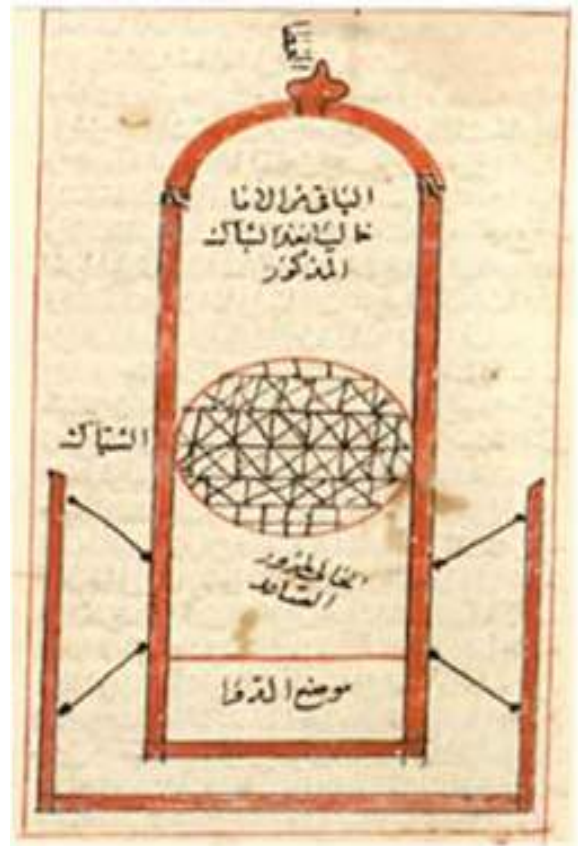 الباقي من الانا
خاليا بعد الشباك
المذكور
الشباك
الخالي لحرور
موضع الدوا